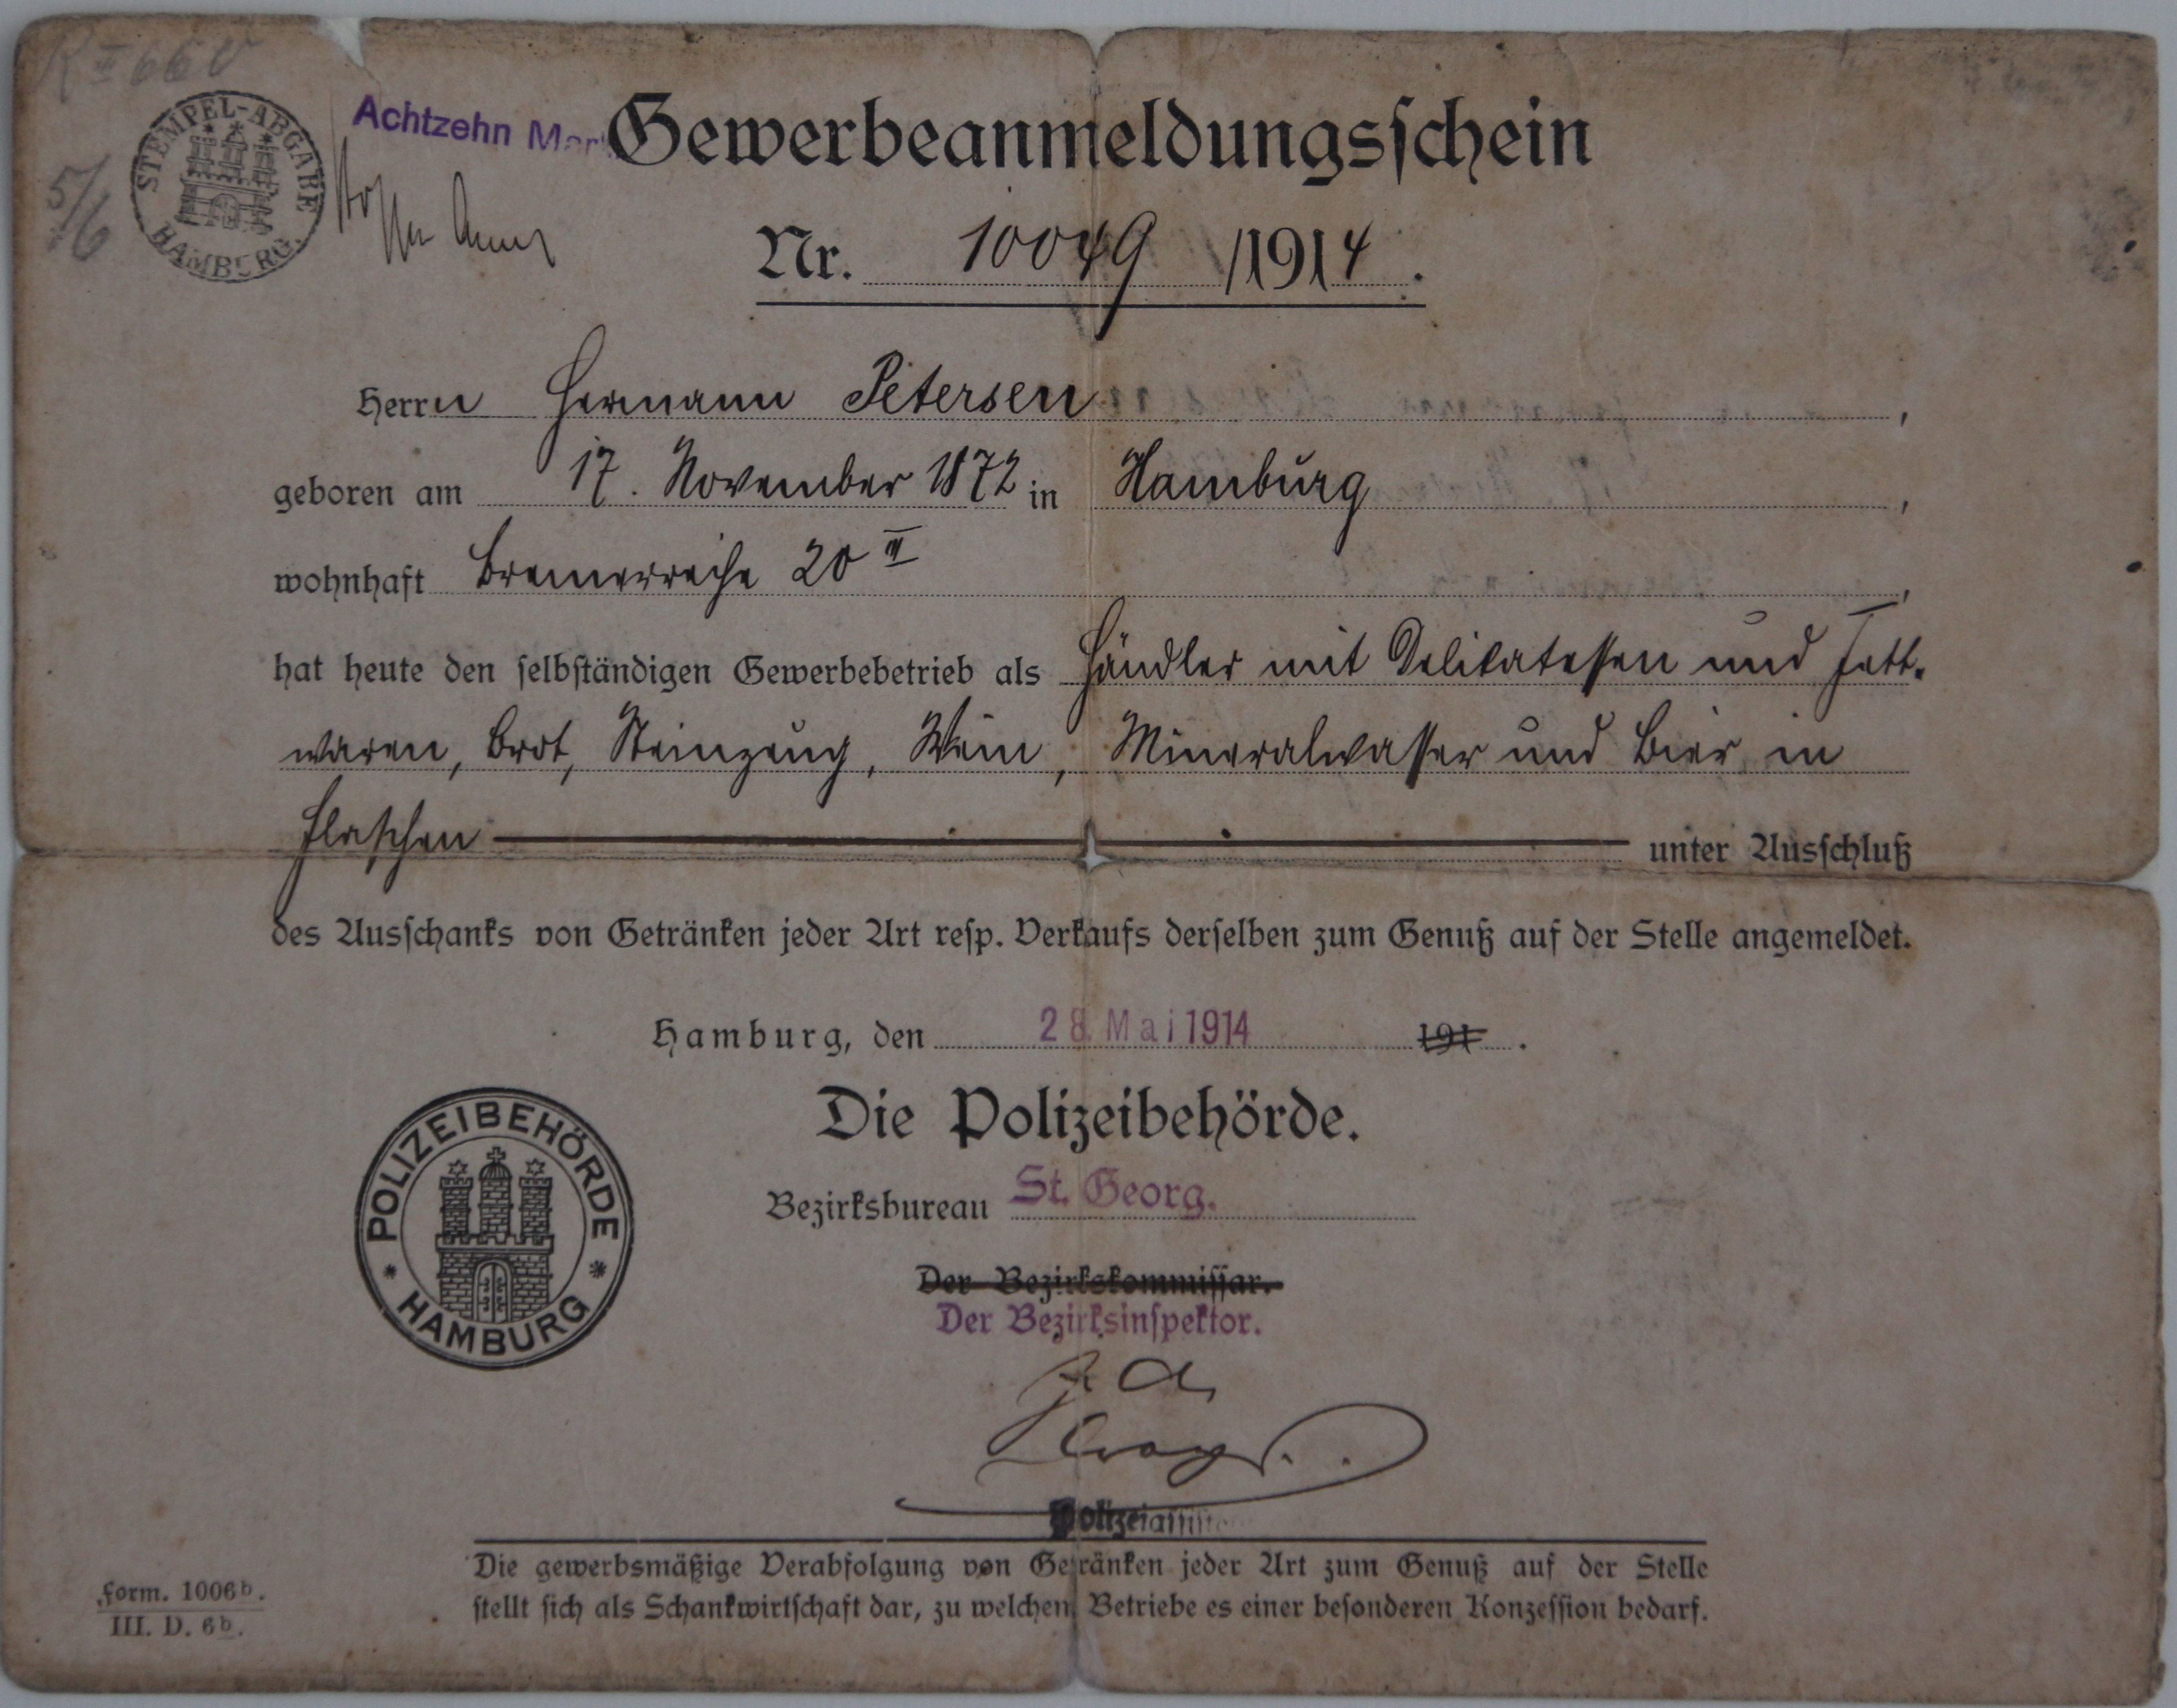 STEMPEL-ABGABE
HAMBURG
5/6
Achtzehn Mark
Gewerbeanmeldungsſchein
Nr. 10049 /1914.
Herrn Hermann Petersen,
geboren am 17. November 1872 in Hamburg,
wohnhaft Bremerreihe 20 II,
hat heute den ſelbſtändigen Gewerbebetrieb als Händler mit Delikatessen und Fett-
waren, Brot, Steinzeug, Wein, Mineralwasser und Bier in
Flaschen unter Ausſchluß
des Ausſchanks von Getränken jeder Art reſp. Verkaufs derſelben zum Genuß auf der Stelle angemeldet.
Hamburg, den 28. Mai 1914 191 .
Die Polizeibehörde.
POLIZEIBEHÖRDE
HAMBURG
Bezirksbureau St. Georg.
Der Bezirkskommiſſar.
Der Bezirksinſpektor.
J. A.
Die gewerbsmäßige Verabfolgung von Getränken jeder Art zum Genuß auf der Stelle
ſtellt ſich als Schankwirtſchaft dar, zu welchem Betriebe es einer beſonderen Konzeſſion bedarf.
Form. 1006b.
III. D. 6b.